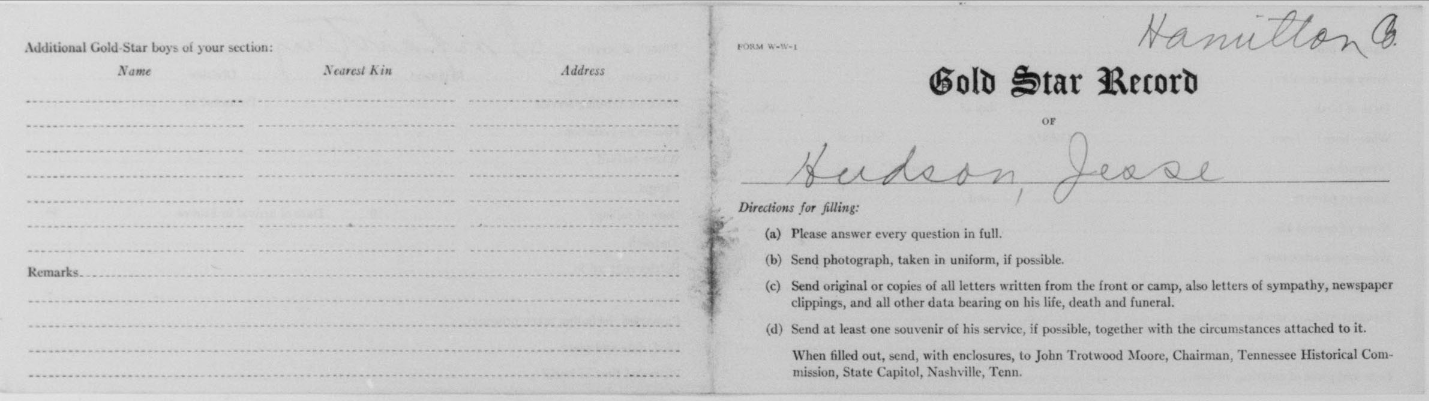 Additional Gold-Star boys of your section:
Name Nearest Kin Address
Remarks
FORM W-W-1
Hamilton Co.
Gold Star Record
OF
Hudson, Jesse
Directions for filling:
(a) Please answer every question in full.
(b) Send photograph, taken in uniform, if possible.
(c) Send original or copies of all letters written from the front or camp, also letters of sympathy, newspaper
clippings, and all other data bearing on his life, death and funeral.
(d) Send at least one souvenir of his service, if possible, together with the circumstances attached to it.
When filled out, send, with enclosures, to John Trotwood Moore, Chairman, Tennessee Historical Com-
mission, State Capitol, Nashville, Tenn.